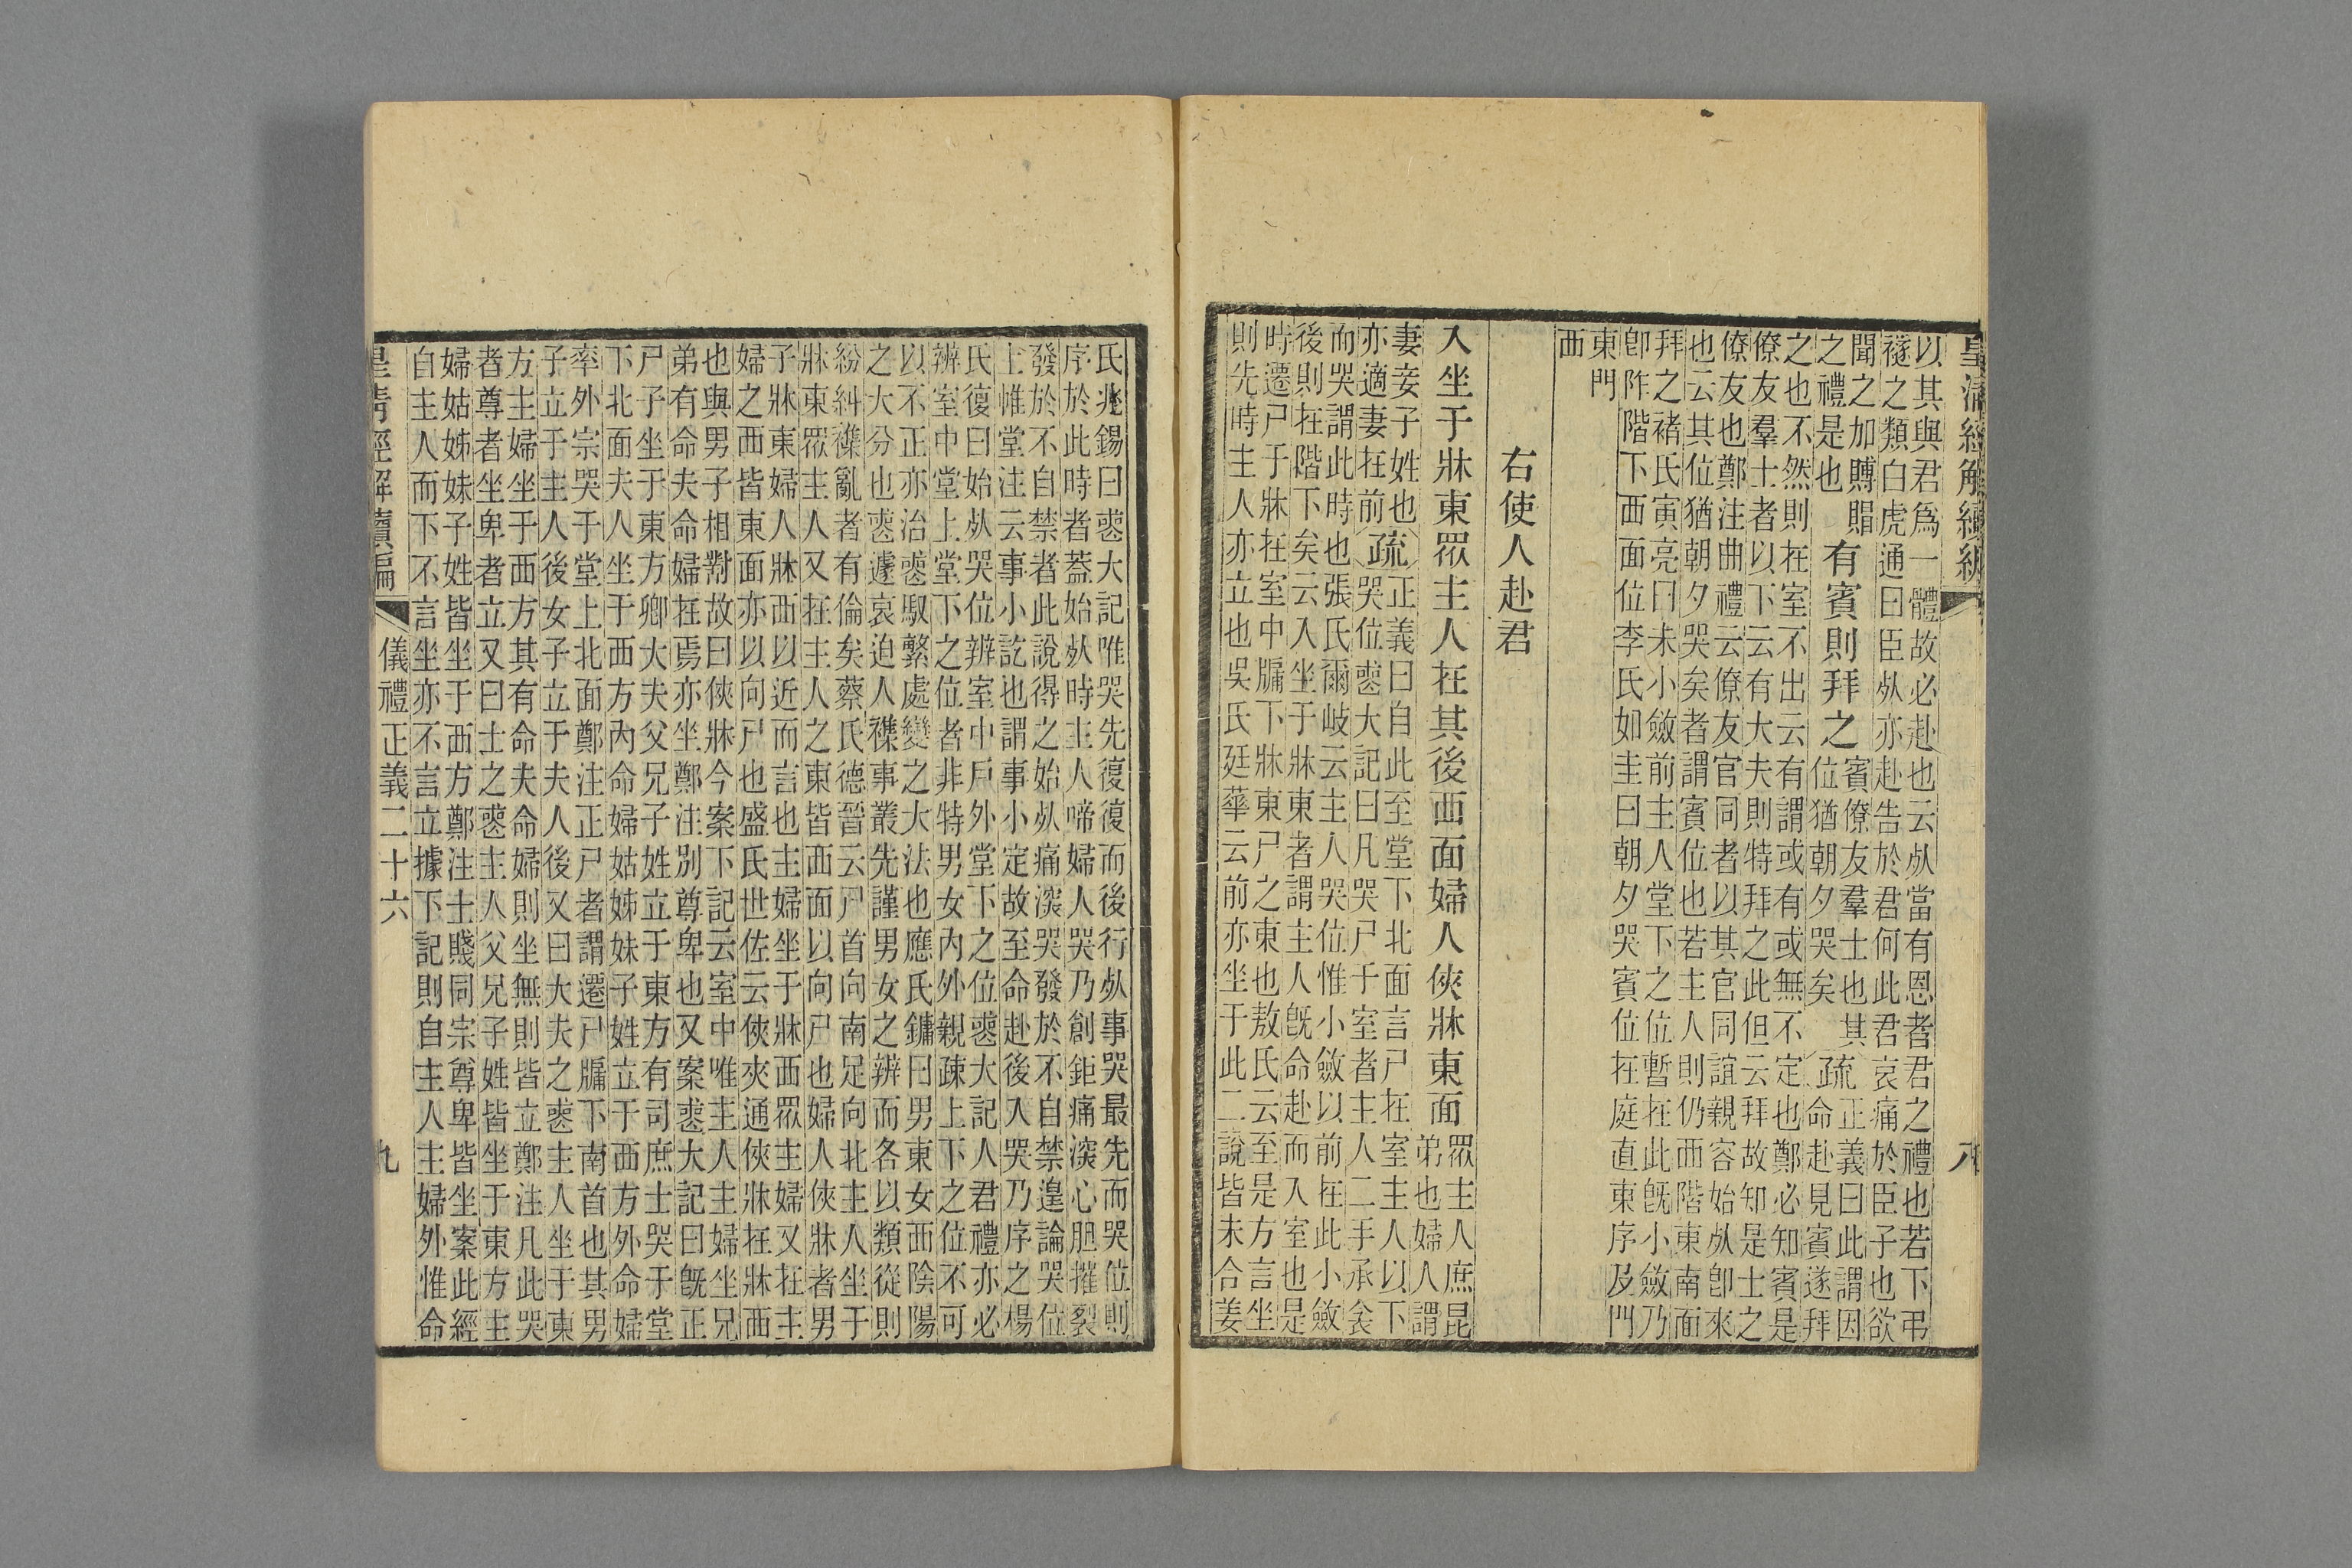 皇清經解續編
八
以其與君爲一體故必赴也云𣦸當有恩者君之禮也若下弔
襚之類白虎通曰臣𣦸亦赴告於君何此君哀痛於臣子也欲
聞之加賻賵
之禮是也
有賓則拜之
賓僚友羣士也其
位猶朝夕哭矣
疏
正義曰此謂因
命赴見賓遂拜
之也不然則在室不出云有謂或有或無不定也鄭必知賓是
僚友羣士者以下云有大夫則特拜之此但云拜故知是士之
僚友也鄭注曲禮云僚友官同者以其官同誼親容始𣦸卽來
也云其位猶朝夕哭矣者謂賓位也若主人則仍西階東南面
拜之褚氏寅亮曰未小斂前主人堂下之位暫在此旣小斂乃
卽阼階下西面位李氏如圭曰朝夕哭賓位在庭直東序及門
東門
西
右使人赴君
入坐于牀東眾主人在其後西面婦人俠牀東面
眾主人庶昆
弟也婦人謂
妻妾子姓也
亦適妻在前
疏
正義曰自此至堂下北面言尸在室主人以下
哭位䘮大記曰凡哭尸于室者主人二手承衾
而哭謂此時也張氏爾岐云主人哭位惟小斂以前在此小斂
後則在階下矣云入坐于牀東者謂主人旣命赴而入室也是
時遷尸于牀在室中牖下牀東尸之東也敖氏云至是方言坐
則先時主人亦立也吳氏廷華云前亦坐于此二說皆未合姜
氏兆錫曰䘮大記唯哭先復復而後行𣦸事哭最先而哭位則
序於此時者葢始𣦸時主人啼婦人哭乃創鉅痛深心胆摧裂
發於不自禁者此說得之始𣦸痛深哭發於不自禁遑論哭位
上帷堂注云事小訖也謂事小定故至命赴後入哭乃序之楊
氏復曰始𣦸哭位辨室中戶外堂下之位䘮大記人君禮亦必
辨室中堂上堂下之位者非特男女內外親疎上下之位不可
以不正亦治䘮馭繫處變之大法也應氏鏞曰男東女西陰陽
之大分也䘮遽哀迫人襍事叢先謹男女之辨而各以類從則
紛糾襍亂者有倫矣蔡氏德晉云尸首向南足向北主人坐于
牀東眾主人又在主人之東皆西面以向尸也婦人俠牀者男
子牀東婦人牀西以近而言也主婦坐于牀西眾主婦又在主
婦之西皆東面亦以向尸也盛氏世佐云俠夾通俠牀在牀西
也與男子相對故曰俠牀今案下記云室中唯主人主婦坐兄
弟有命夫命婦在焉亦坐鄭注別尊卑也又案䘮大記曰旣正
尸子坐于東方卿大夫父兄子姓立于東方有司庶士哭于堂
下北面夫人坐于西方內命婦姑姊妹子姓立于西方外命婦
率外宗哭于堂上北面鄭注正尸者謂遷尸牖下南首也其男
子立于主人後女子立于夫人後又曰大夫之䘮主人坐于東
方主婦坐于西方其有命夫命婦則坐無則皆立鄭注凡此哭
者尊者坐卑者立又曰士之䘮主人父兄子姓皆坐于東方主
婦姑姊妹子姓皆坐于西方鄭注士賤同宗尊卑皆坐案此經
自主人而下不言坐亦不言立據下記則自主人主婦外惟命
皇清經解續編
儀禮正義二十六
九